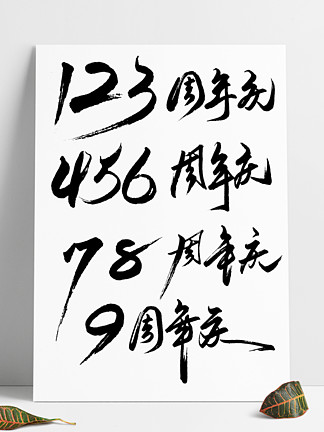 123周年庆
456周年庆
78周年庆
9周年庆